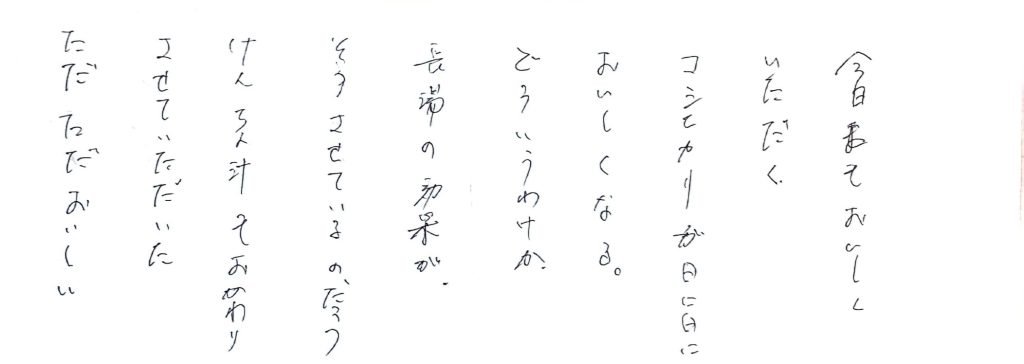 今日もまたおいしく
いただく
コシヒカリが日に日に
おいしくなる。
どういうわけか、
長湯の効果が、
そうさせているのだろう
けんちん汁もおかわり
させていただいた
ただただおいしい